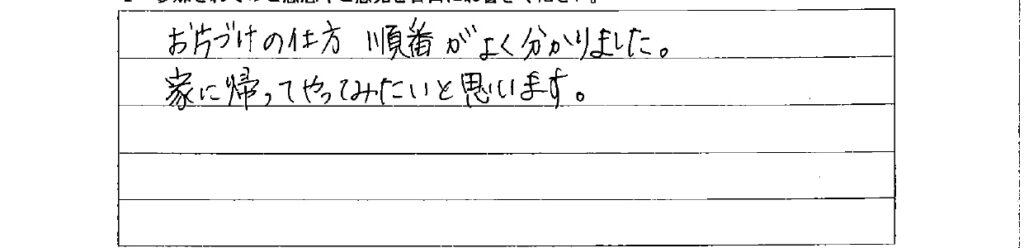 お片づけの仕方 順番がよく分かりました。
家に帰ってやってみたいと思います。